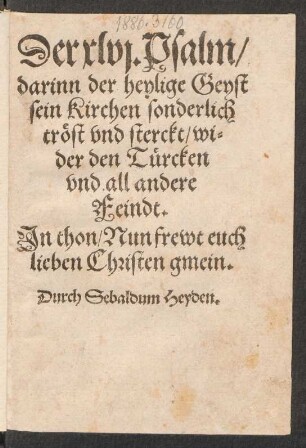 1880. 3160
Der xlvj. Psalm/
darinn der heylige Geyst
sein Kirchen sonderlich
tröst vnd sterckt/ wi-
der den Türcken
vnd all andere
Feindt.
In thon/ Nun frewt euch
lieben Christen gmein.
Durch Sebaldum Heyden.